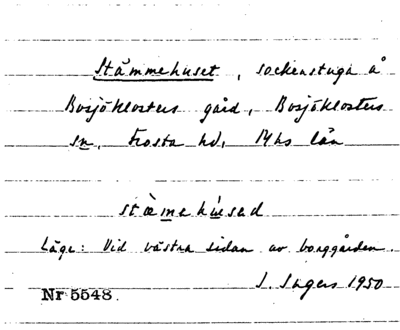 Stämmehuset, sockenstuga å
Bosjöklosters gård, Bosjöklosters
sn, Frosta hd, Mhs län
stæ̀mehúsad
Läge: Vid västra sidan av borggården.
I. Ingers 1950
Nr 5548.